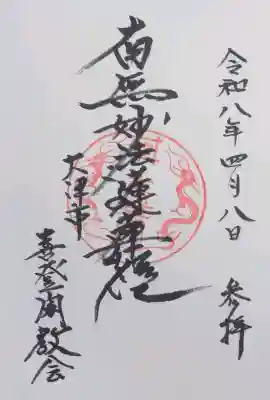 令和八年四月八日
参拝
南無妙法蓮華経
大津市
喜登開教会